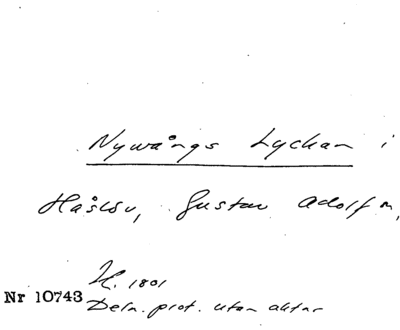 Nywångs Lyckan i
Håslöv, Gustav Adolf m,
H. 1801
Nr 10743
Deln. prot. utan aktar